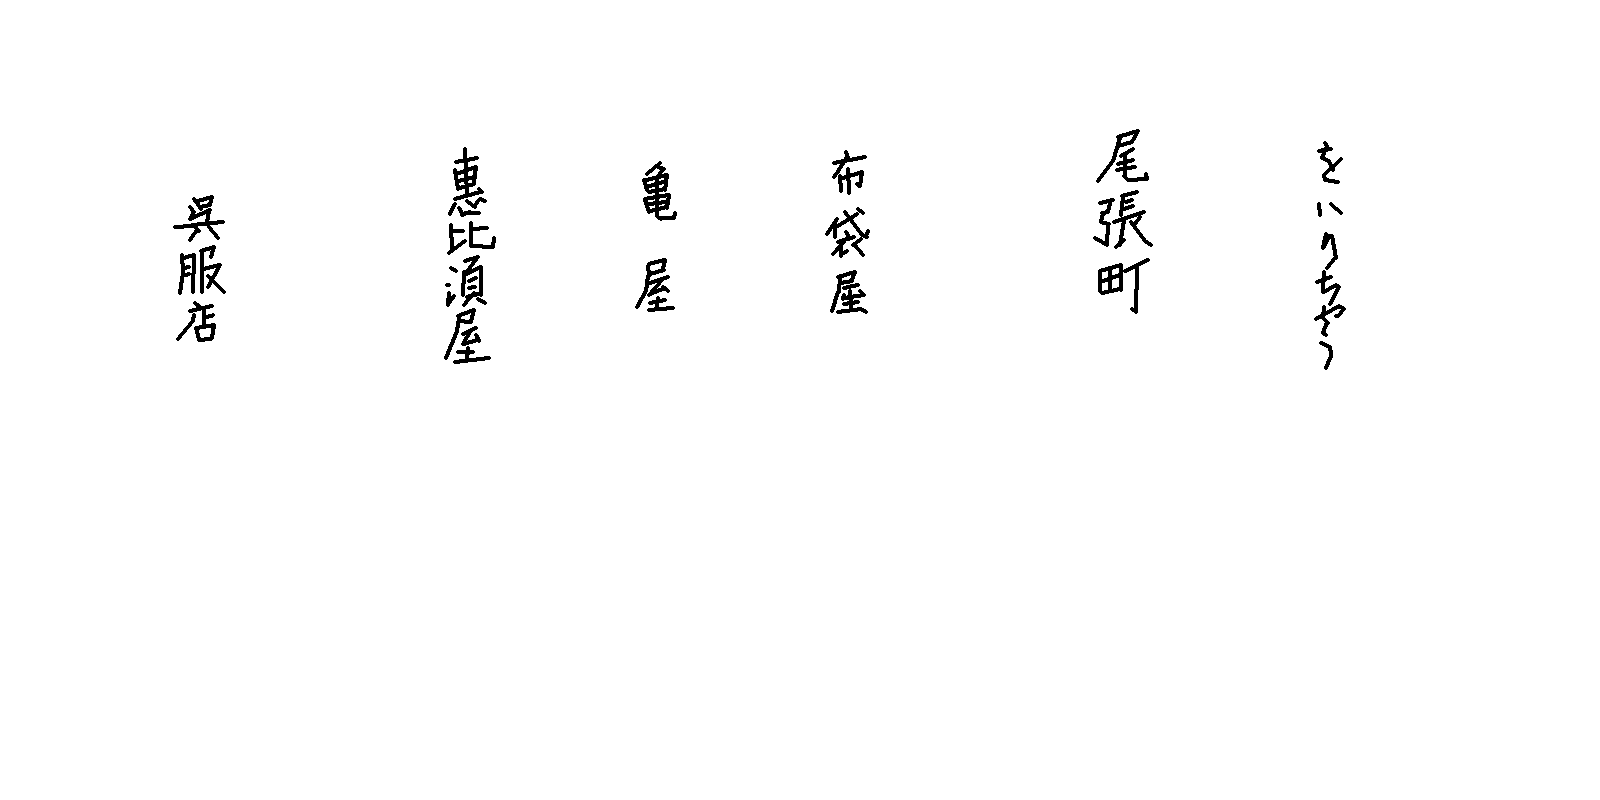 をいりちやう
尾張町
布袋屋
亀屋
惠比須屋
呉服店